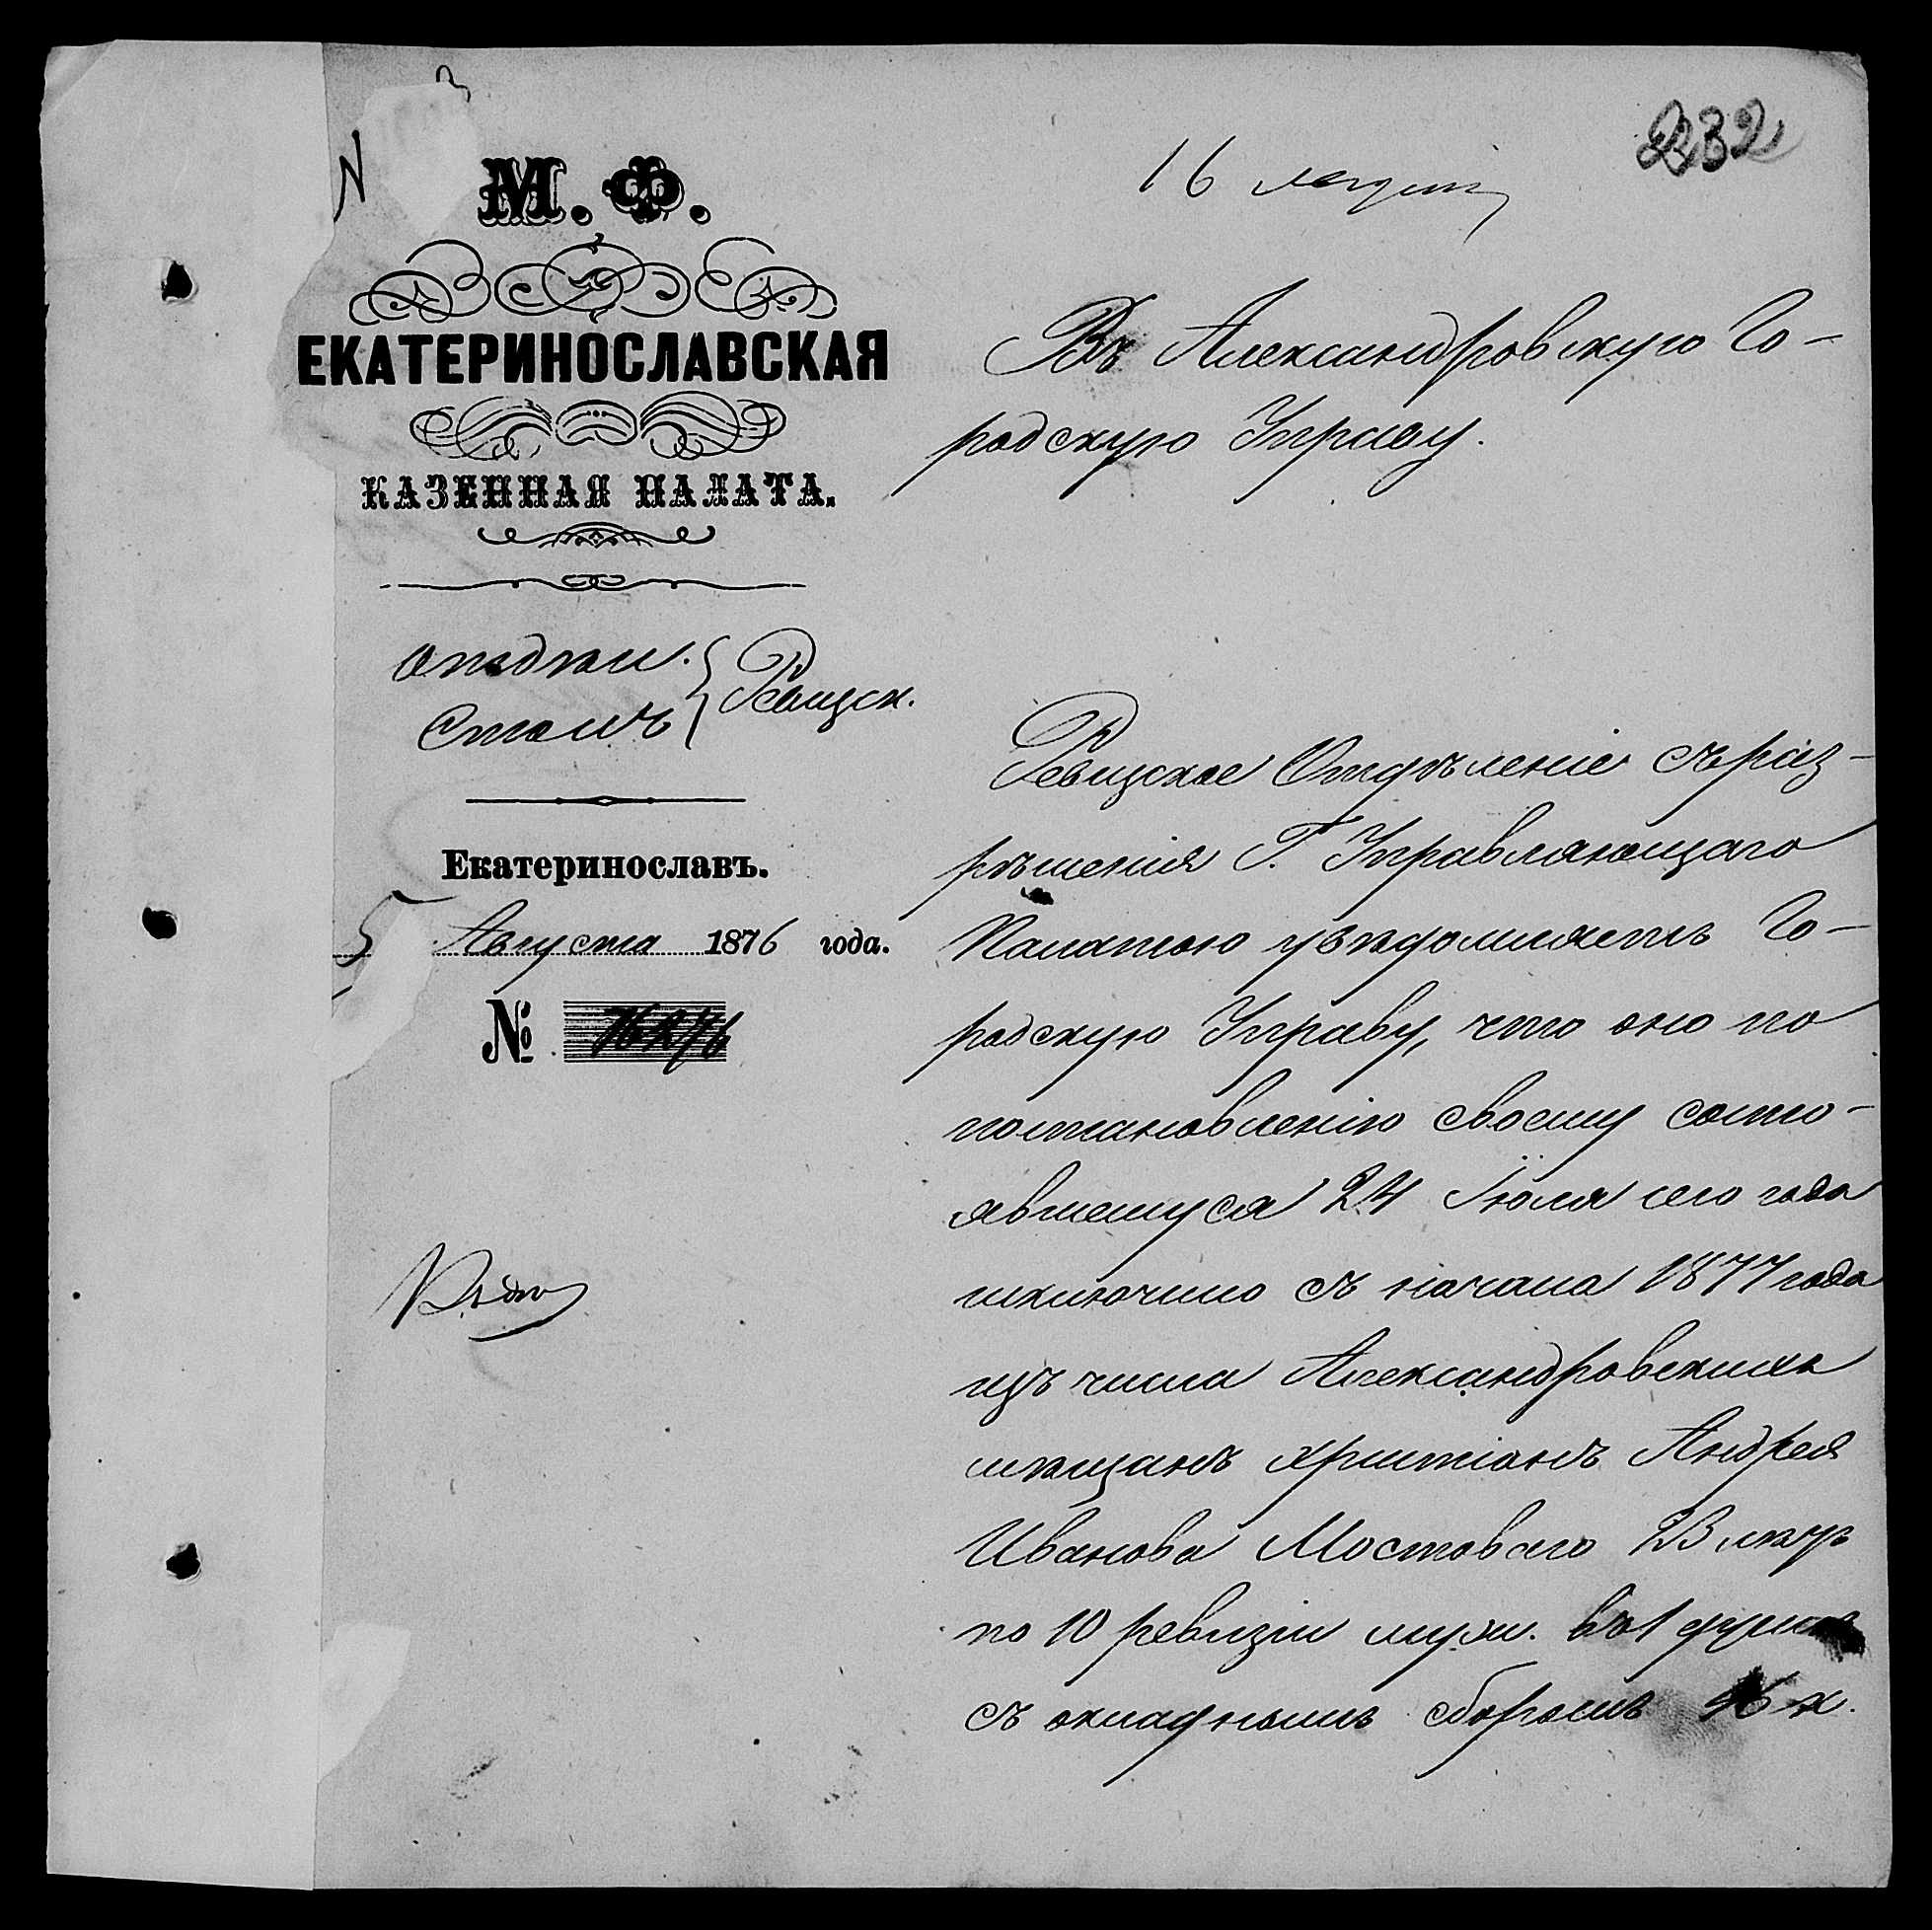 232
М. Ф.
ЕКАТЕРИНОСЛАВСКАЯ
КАЗЕННАЯ ПАЛАТА.
Отдѣл.
Столъ } Ревизск.
Екатеринославъ.
5 Августа 1876 года.
№
16
Въ Александровскую Го-
родскую Управу.
Ревизское Отдѣленіе съ раз-
рѣшенія Г. Управляющаго
Палатою увѣдомляетъ Го-
родскую Управу, что оно по
постановленію своему состо-
явшемуся 24 Іюля сего года
исключило съ начала 1877 года
изъ числа Александровскихъ
мѣщанъ христіанъ Андрея
Иванова Мостоваго
по 10 ревизіи муж. въ 1 душѣ
съ окладнымъ сборомъ к.